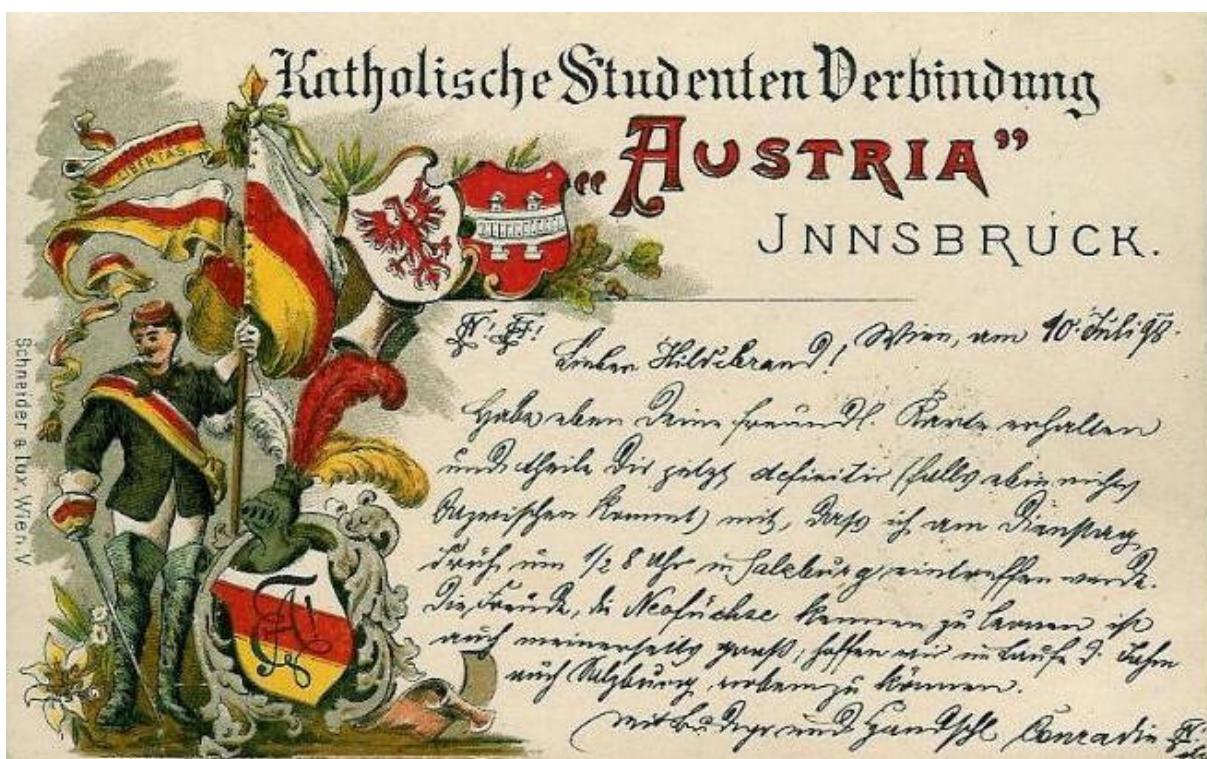 Katholische Studenten Verbindung
„AUSTRIA”
JNNSBRUCK.
LIBERTAS
Wien, am 10. Juli 98.
Lieber Hildebrand!
Habe eben Deine freundl. Karte erhalten
und theile Dir jetzt definitiv (falls nichts
dazwischen kommt) mit, daß ich am Dienstag
früh um 1/2 8 Uhr in Salzburg eintreffen werde.
Die Freude, die Neofüchse kennen zu lernen ist
auch meinerseits groß; hoffen wir im Laufe d. Jahre
auch Salzburg zu können.
Mit und Handschl Conradin
Schneider & Lux Wien V